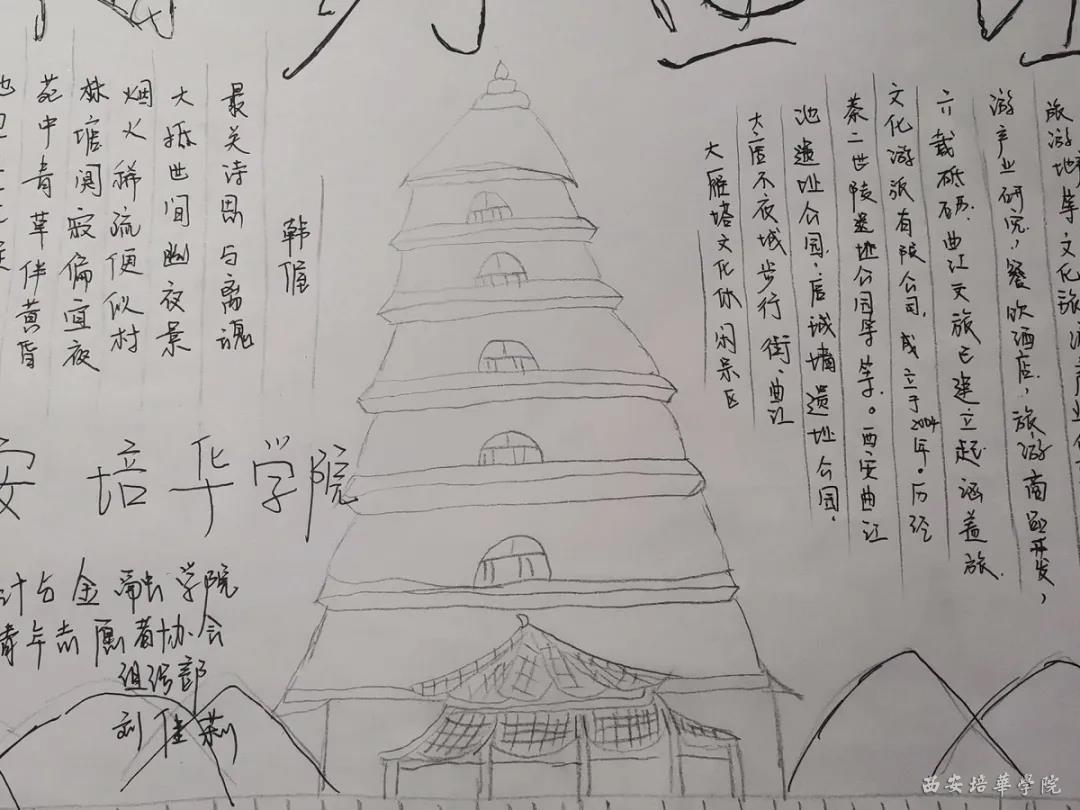 苑中青草伴黄昏
林塘阒寂偏宜夜
烟火稀疏便似村
大抵世间幽夜景
最关诗思与离魂
韩偓
大雁塔文化休闲景区
大唐不夜城步行街、曲江
池遗址公园、唐城墙遗址公园、
秦二世陵遗址公园等等。西安曲江
文化游旅有限公司，成立于2004年。历经
六载砥砺，曲江文旅已建立起涵盖旅
游产业研究，餐饮酒店，旅游商区开发，
旅游地等文化旅游产业
安培华学院
计与金融学院
青年志愿者协会
组织部
刘佳莉
西安培華学院